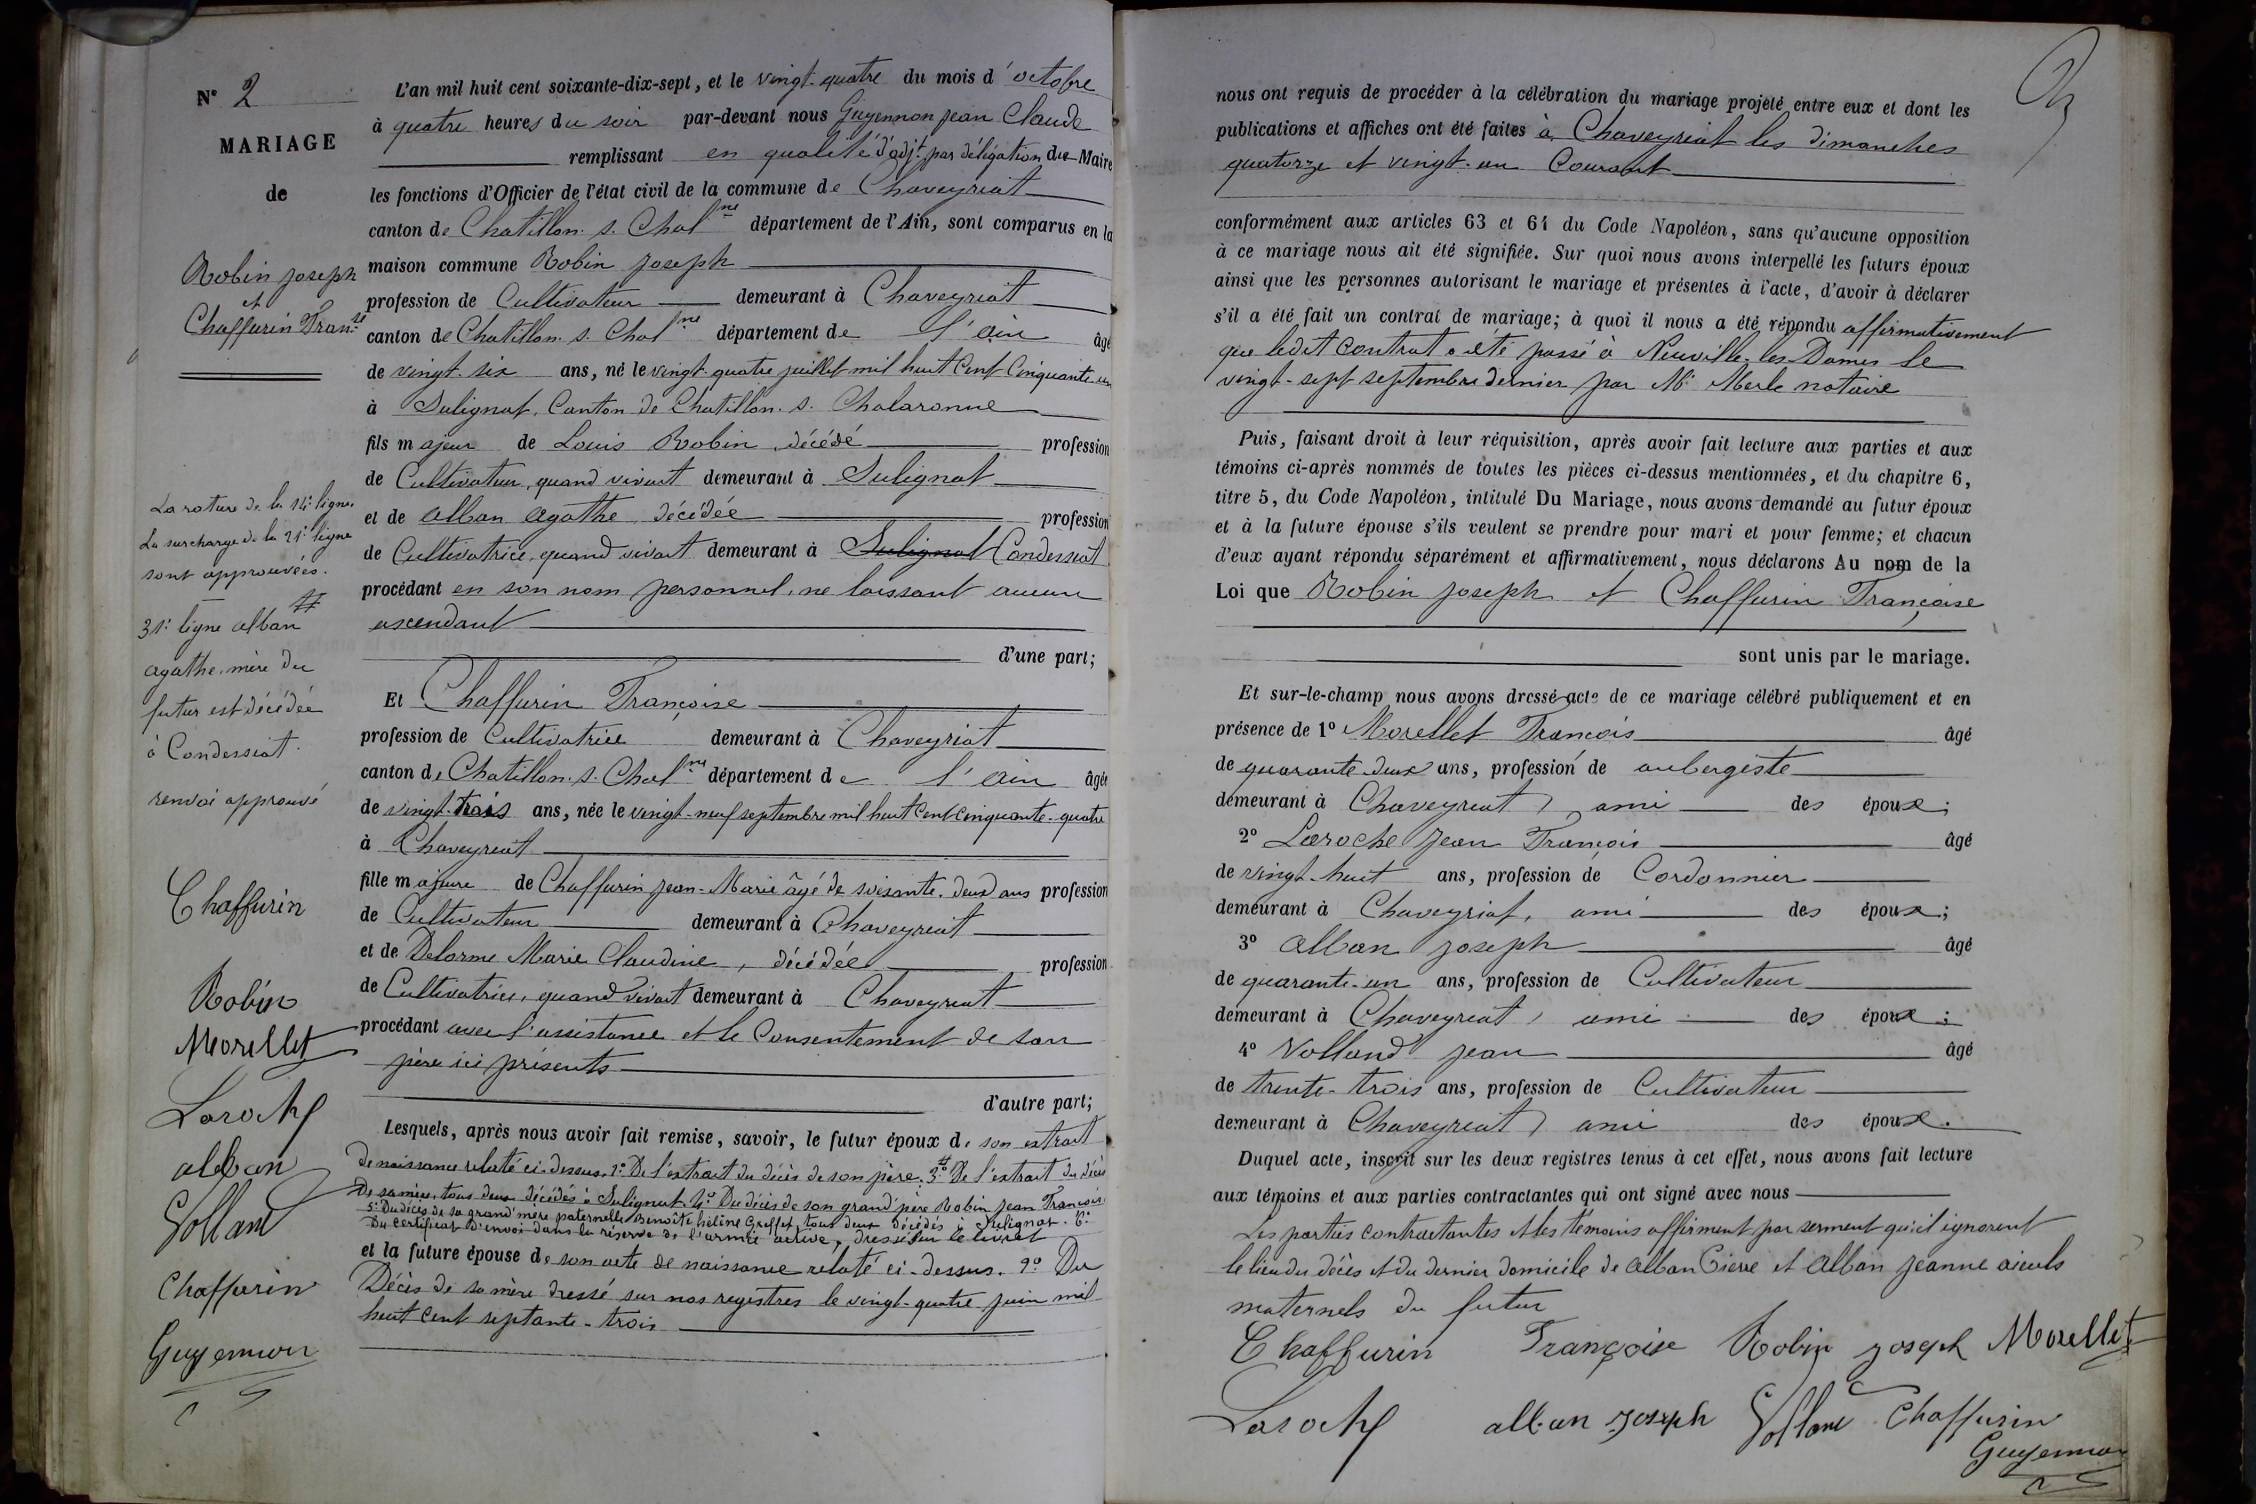 N° 2
MARIAGE
de
Robin Joseph
et
Chaffurin Fran.se
La rature de la 14e ligne.
La surcharge de la 21e ligne
sont approuvées.
31e ligne alban
agathe, mère du
futur est décédée
à Condessiat.
renvoi approuvé
Chaffurin
Robin
Morellet
Laroche
alban
Vollant
Chaffurin
Guyennon
L'an mil huit cent soixante-dix-sept, et le vingt-quatre du mois d'octobre
à quatre heures du soir par-devant nous Guyennon Jean Claude
remplissant en qualité d'adjt. par délégation du Maire
les fonctions d'Officier de l'état civil de la commune de Chaveyriat
canton de Chatillon. s. Chalne département de l'Ain, sont comparus en la
maison commune Robin Joseph
profession de Cultivateur demeurant à Chaveyriat
canton de Chatillon. s. Chalne département de l'ain âgé
de vingt-six ans, né le vingt-quatre juillet mil huit cent cinquante-un
à Sulignat, Canton de Chatillon. s. Chalaronne
fils majeur de Louis Robin, décédé profession
de Cultivateur, quand vivait demeurant à Sulignat
et de alban agathe, décédée profession
de Cultivatrice, quand vivait demeurant à Sulignat Condessiat
procédant en son nom personnel, ne laissant aucun
ascendant
d'une part;
Et Chaffurin Françoise
profession de Cultivatrice demeurant à Chaveyriat
canton de Chatillon. s. Chalne département de l'ain âgée
de vingt-trois ans, née le vingt-neuf septembre mil huit cent cinquante-quatre
à Chaveyriat
fille majeure de Chaffurin Jean-Marie âgé de soixante-deux ans profession
de Cultivateur demeurant à Chaveyriat
et de Delorme Marie Claudine, décédée profession
de Cultivatrice, quand vivait demeurant à Chaveyriat
procédant avec l'assistance et le Consentement de son
père ici présents
d'autre part;
Lesquels, après nous avoir fait remise, savoir, le futur époux de son extrait
de naissance relaté ci-dessus. 2° De l'extrait du décès de son père. 3° De l'extrait du décès
de sa mère, tous deux décédés à Sulignat. 4° Du décès de son grand'père Robin Jean François
5° Du décès de sa grand'mère paternelle Benoîte hélène Greffet, tous deux décédés à Sulignat. 6°
Du Certificat d'envoi dans la réserve de l'armée active, dressé sur le livret
et la future épouse de son acte de naissance relaté ci-dessus. 2° Du
Décès de sa mère dressé sur nos registres le vingt-quatre juin mil
huit cent septante-trois
nous ont requis de procéder à la célébration du mariage projeté entre eux et dont les
publications et affiches ont été faites à Chaveyriat les dimanches
quatorze et vingt-un Courant
conformément aux articles 63 et 64 du Code Napoléon, sans qu'aucune opposition
à ce mariage nous ait été signifiée. Sur quoi nous avons interpellé les futurs époux
ainsi que les personnes autorisant le mariage et présentes à l'acte, d'avoir à déclarer
s'il a été fait un contrat de mariage; à quoi il nous a été répondu affirmativement
que ledit contrat a été passé à Neuville-les-Dames le
vingt-sept septembre dernier par Me Merle notaire
Puis, faisant droit à leur réquisition, après avoir fait lecture aux parties et aux
témoins ci-après nommés de toutes les pièces ci-dessus mentionnées, et du chapitre 6,
titre 5, du Code Napoléon, intitulé Du Mariage, nous avons demandé au futur époux
et à la future épouse s'ils veulent se prendre pour mari et pour femme; et chacun
d'eux ayant répondu séparément et affirmativement, nous déclarons Au nom de la
Loi que Robin Joseph et Chaffurin Françoise
sont unis par le mariage.
Et sur-le-champ nous avons dressé acte de ce mariage célébré publiquement et en
présence de 1° Morellet François âgé
de quarante-deux ans, profession de aubergiste
demeurant à Chaveyriat, ami des époux;
2° Laroche Jean François âgé
de vingt-huit ans, profession de Cordonnier
demeurant à Chaveyriat, ami des époux;
3° Alban Joseph âgé
de quarante-un ans, profession de Cultivateur
demeurant à Chaveyriat, ami des époux;
4° Volland Jean âgé
de trente-trois ans, profession de Cultivateur
demeurant à Chaveyriat, ami des époux.
Duquel acte, inscrit sur les deux registres tenus à cet effet, nous avons fait lecture
aux témoins et aux parties contractantes qui ont signé avec nous
Les parties contractantes et les témoins affirment par serment qu'il ignorent
le lieu du décès et du dernier domicile de Alban Pierre et Alban Jeanne aieuls
maternels du futur
Chaffurin Françoise Robin Joseph Morellet
Laroche alban Joseph Vollant Chaffurin
Guyennon